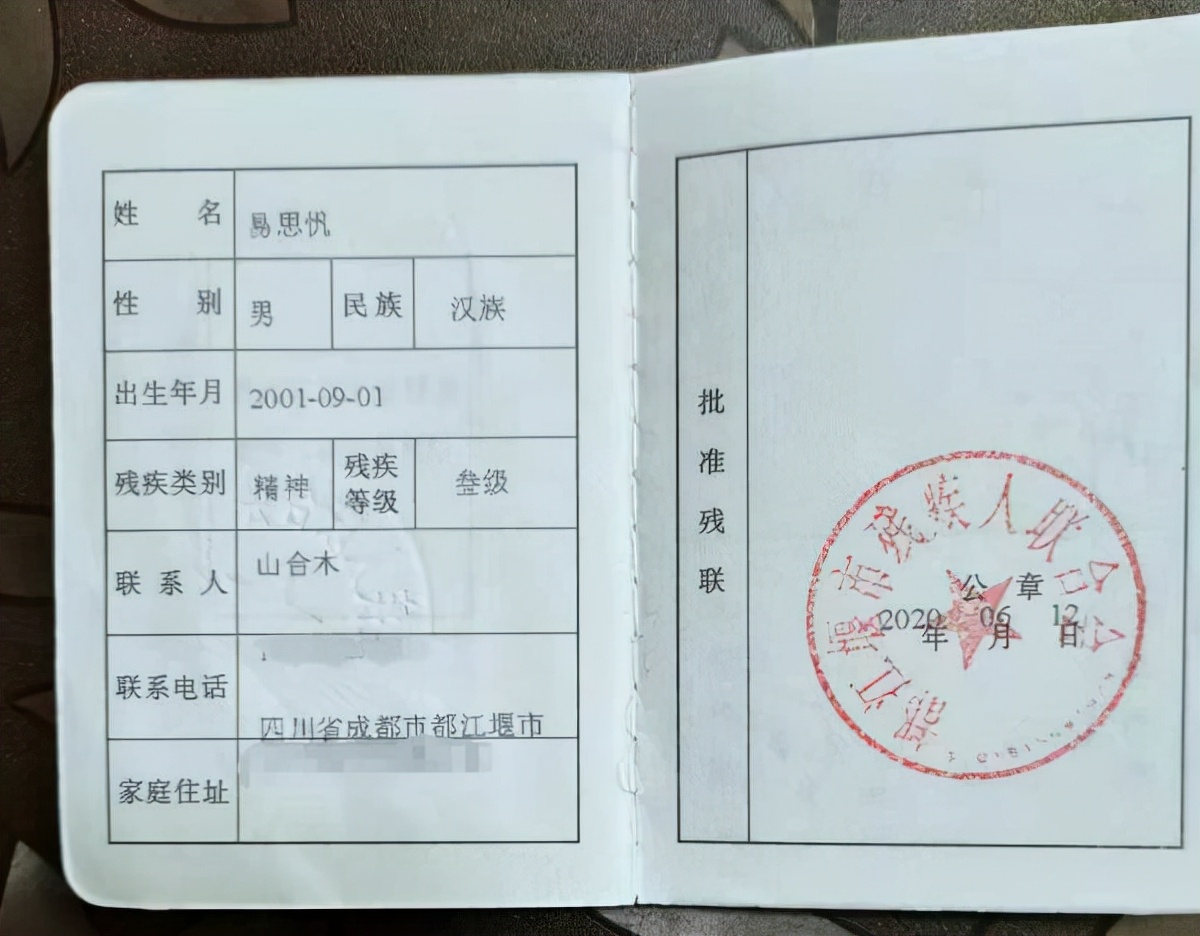 姓名 易思帆
性别 男 民族 汉族
出生年月 2001-09-01
残疾类别 精神 残疾等级 叁级
联系人 山合木
联系电话
四川省成都市都江堰市
家庭住址
批准残联
都江堰市残疾人联合会
公章
2020 06 12
年 月 日